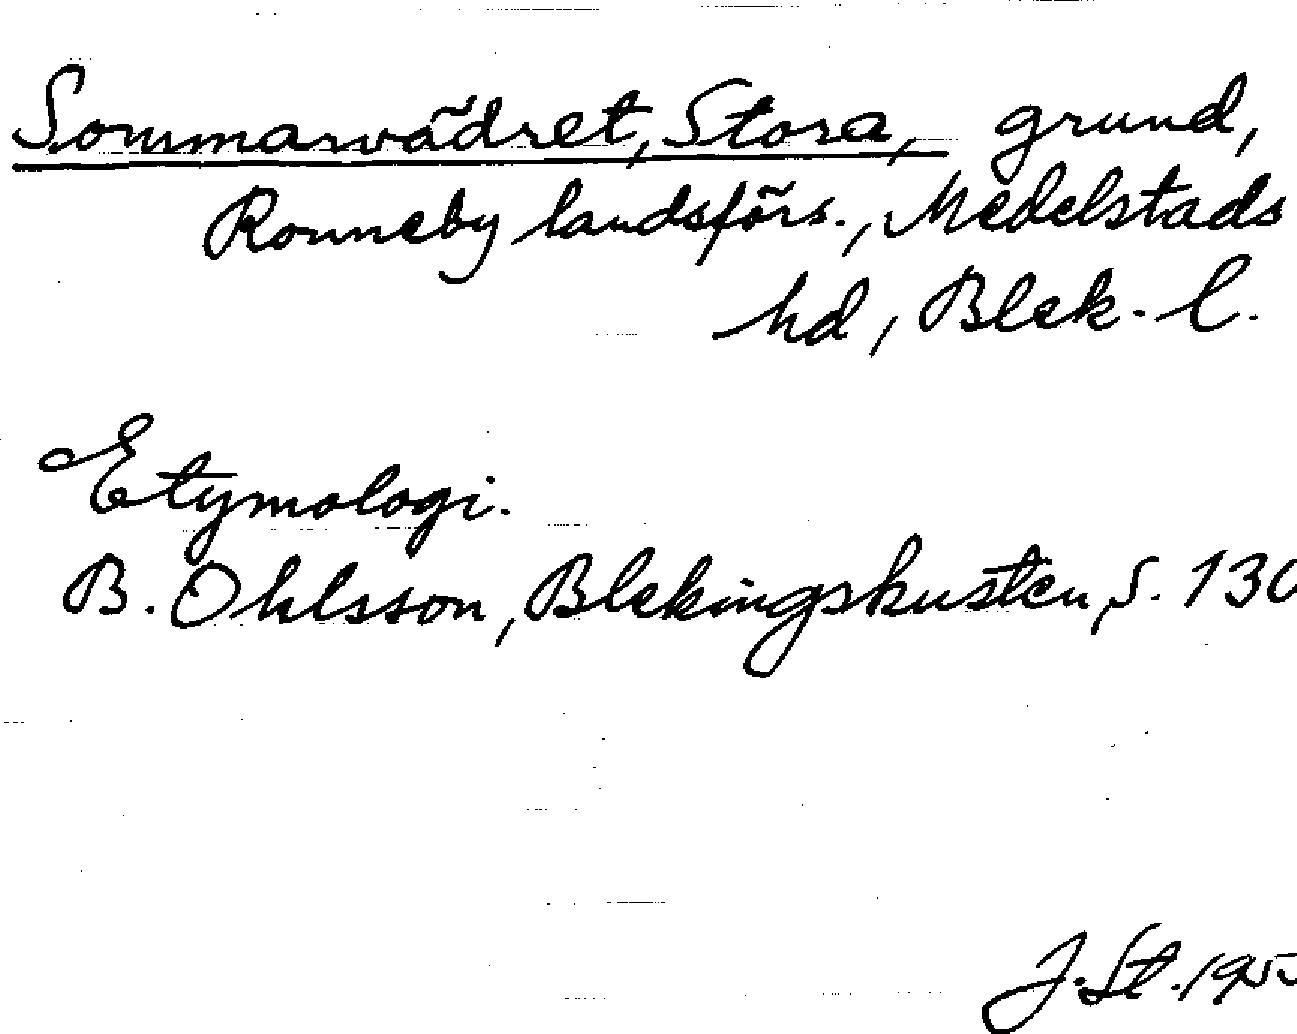 Sommarvädret, Stora, grund,
Ronneby landsförs., Medelstads
hd, Blek. l.
Etymologi.
B. Ohlsson, Blekingskusten, s. 130
J. St. 195